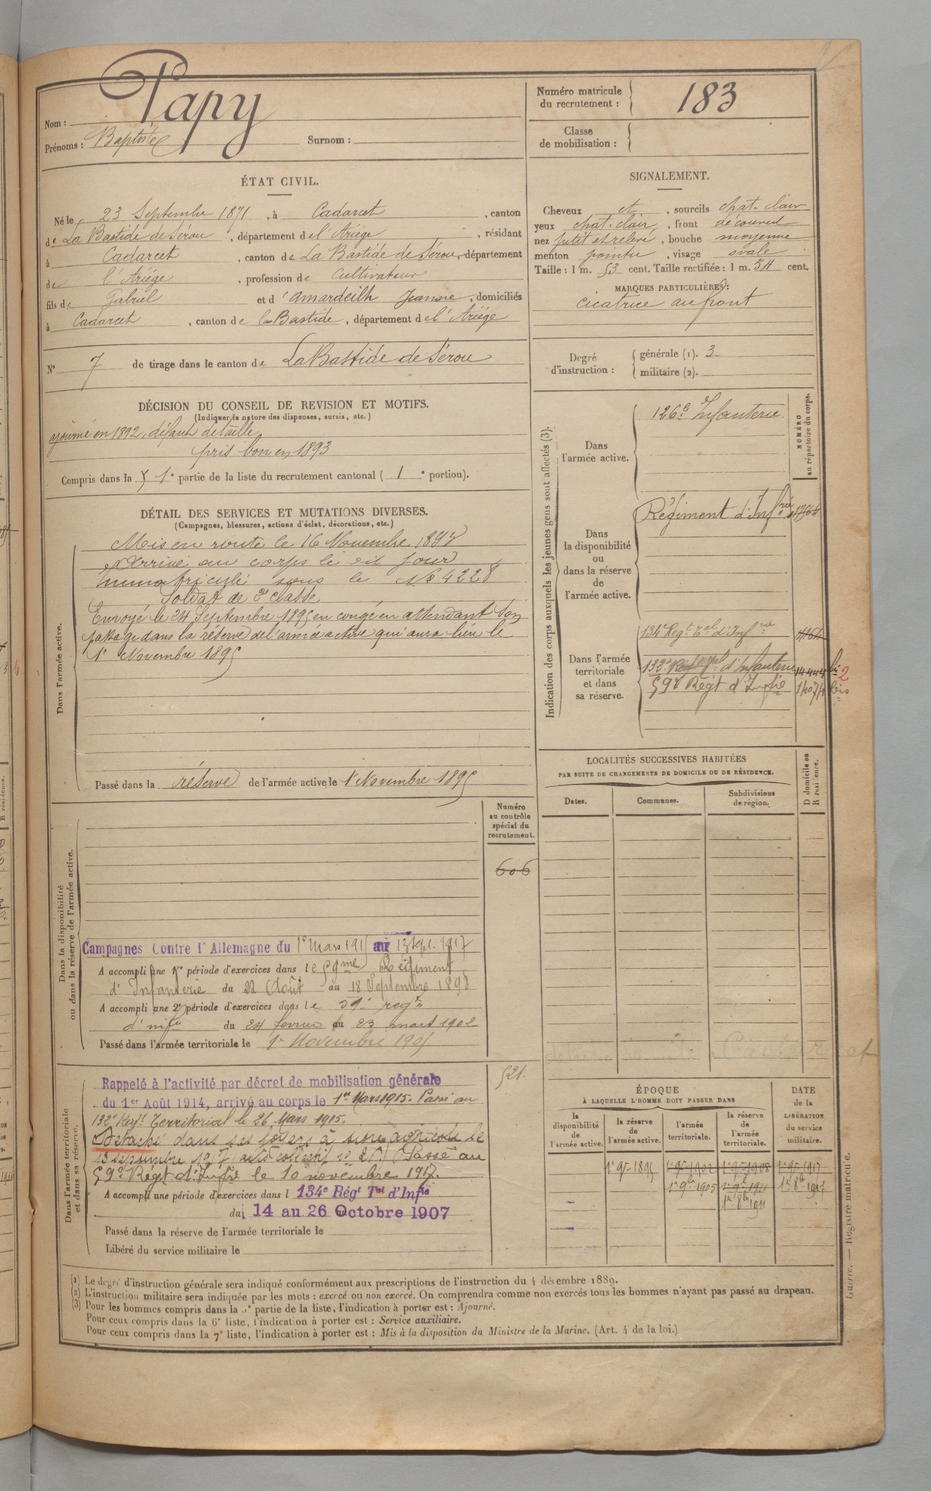 Nom : Papy
Prénoms : Baptiste Surnom :
Numéro matricule du recrutement : 183
Classe de mobilisation :
ÉTAT CIVIL.
Né le 23 Septembre 1871, à Cadarcet, canton
de La Bastide de Sérou, département de l'Ariège, résidant
à Cadarcet, canton de La Bastide de Sérou, département
de l'Ariège, profession de Cultivateur
fils de Gabriel et d'Amardeilh Jeanne, domiciliés
à Cadarcet, canton de la Bastide, département de l'Ariège
N° 7 de tirage dans le canton de La Bastide de Sérou
SIGNALEMENT.
Cheveux et, sourcils chat. clair
yeux chat. clair, front découvert
nez petit et relevé, bouche moyenne
menton pointu, visage ovale
Taille : 1 m. 53 cent. Taille rectifiée : 1 m. 54 cent.
MARQUES PARTICULIÈRES :
cicatrice au front
Degré d'instruction : générale (1). 3
militaire (2).
DÉCISION DU CONSEIL DE REVISION ET MOTIFS.
(Indiquer la nature des dispenses, sursis, etc.)
ajourné en 1892, défaut de taille
pris bon en 1893
Compris dans la 1e partie de la liste du recrutement cantonal ( 1e portion).
DÉTAIL DES SERVICES ET MUTATIONS DIVERSES.
(Campagnes, blessures, actions d'éclat, décorations, etc.)
Dans l'armée active.
Mis en route le 16 Novembre
Arrivé au corps le dit jour
immatriculé sous le N° 4228
Soldat de 2e classe
Envoyé le 24 Septembre 1895 en congé en attendant son
passage dans la réserve de l'armée active qui aura lieu le
1er Novembre 1895
Passé dans la réserve de l'armée active le 1er Novembre 1895
Indication des corps auxquels les jeunes gens sont affectés (3).
NUMÉRO au répertoire du corps.
Dans l'armée active.
126e Infanterie
Dans la disponibilité ou dans la réserve de l'armée active.
Régiment d'Infrie
Dans l'armée territoriale et dans sa réserve.
134e Régt Tal d'Infrie
132e d'Infanterie
59e Régt d'Infie
LOCALITÉS SUCCESSIVES HABITÉES
PAR SUITE DE CHANGEMENTS DE DOMICILE OU DE RÉSIDENCE.
Dates. Communes. Subdivisions de région. D domicile ou R résidence.
Dans la disponibilité ou dans la réserve de l'armée active.
Numéro au contrôle spécial du recrutement.
606
Campagnes Contre l'Allemagne du 1er Mars 1915 au 13 Sept. 1917
A accompli une 1re période d'exercices dans le 59me Régiment
d'Infanterie du 22 Août au 18 Septembre 1898
A accompli une 2e période d'exercices dans le 59e regt
d'infie du 24 février au 23 mars 1902
Passé dans l'armée territoriale le 1er Novembre 1905
Dans l'armée territoriale et dans sa réserve.
521
Rappelé à l'activité par décret de mobilisation générale
du 1er Août 1914, arrivé au corps le 1er Mars 1915. Passé au
132e Régt Territorial le 26 Mars 1915.
Détaché dans ses foyers à titre agricole le
13 septembre 1917 Passé au
59e Régt d'Infrie le 10 novembre 1917.
A accompli une période d'exercices dans l 134e Régt Tal d'Infie
du 14 au 26 Octobre 1907
Passé dans la réserve de l'armée territoriale le
Libéré du service militaire le
ÉPOQUE
À LAQUELLE L'HOMME DOIT PASSER DANS
la disponibilité de l'armée active. la réserve de l'armée active. l'armée territoriale. la réserve de l'armée territoriale. DATE de la LIBÉRATION du service militaire.
1er 9bre 1895
1er 9bre 1905
(1) Le degré d'instruction générale sera indiqué conformément aux prescriptions de l'instruction du 4 décembre 1889.
(2) L'instruction militaire sera indiquée par les mots : exercé ou non exercé. On comprendra comme non exercés tous les hommes n'ayant pas passé au drapeau.
(3) Pour les hommes compris dans la partie de la liste, l'indication à porter est : Ajourné.
Pour ceux compris dans la 6e liste, l'indication à porter est : Service auxiliaire.
Pour ceux compris dans la 7e liste, l'indication à porter est : Mis à la disposition du Ministre de la Marine. (Art. 4 de la loi.)
Guerre. — Registre matricule.